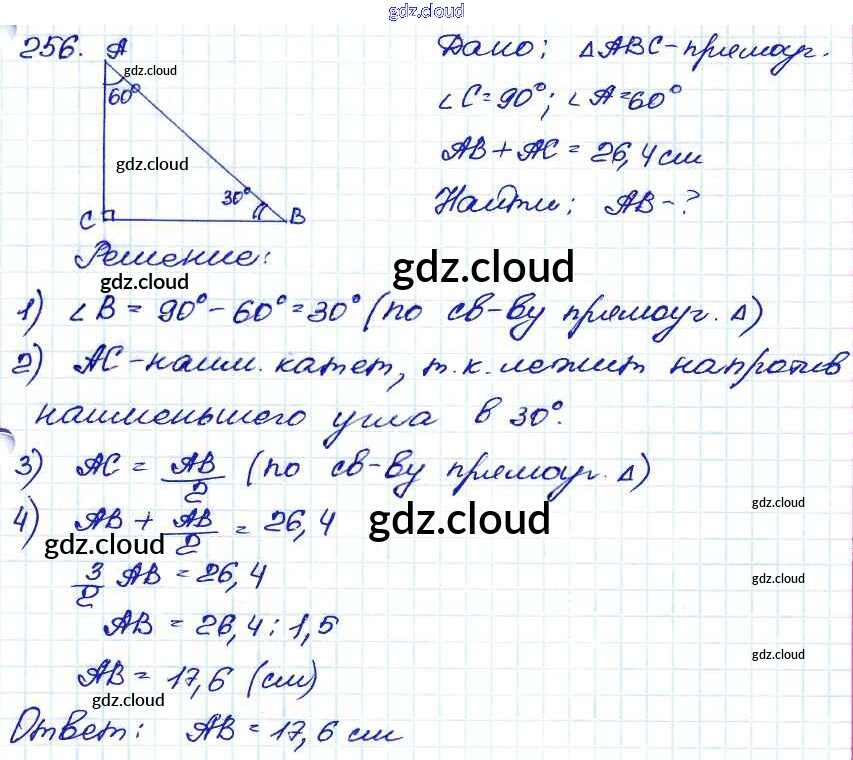 gdz.cloud
256.
A
gdz.cloud
60°
gdz.cloud
30°
C
B
Дано; ΔABC-прямоуг.
∠C=90°; ∠A=60°
AB+AC=26,4см
Найти; AB-?
Решение:
gdz.cloud
gdz.cloud
1) ∠B=90°-60°=30° (по св-ву прямоуг. Δ)
2) AC-наим. катет, т.к. лежит напротив
наименьшего угла в 30°.
3) AC = AB/2 (по св-ву прямоуг. Δ)
gdz.cloud
4) AB + AB/2 = 26,4
gdz.cloud
gdz.cloud
3/2 AB = 26,4
gdz.cloud
AB = 26,4 : 1,5
gdz.cloud
AB = 17,6 (см)
gdz.cloud
Ответ: AB = 17,6 см